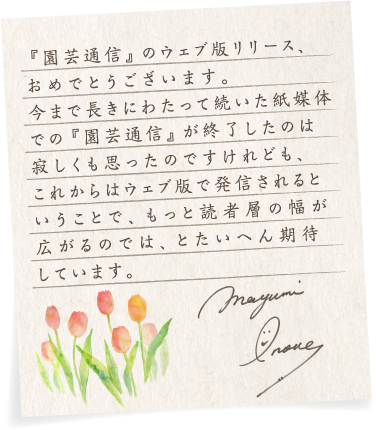 『園芸通信』のウェブ版リリース、
おめでとうございます。
今まで長きにわたって続いた紙媒体
での『園芸通信』が終了したのは
寂しくも思ったのですけれども、
これからはウェブ版で発信されると
いうことで、もっと読者層の幅が
広がるのでは、とたいへん期待
しています。
Mayumi
Inoue